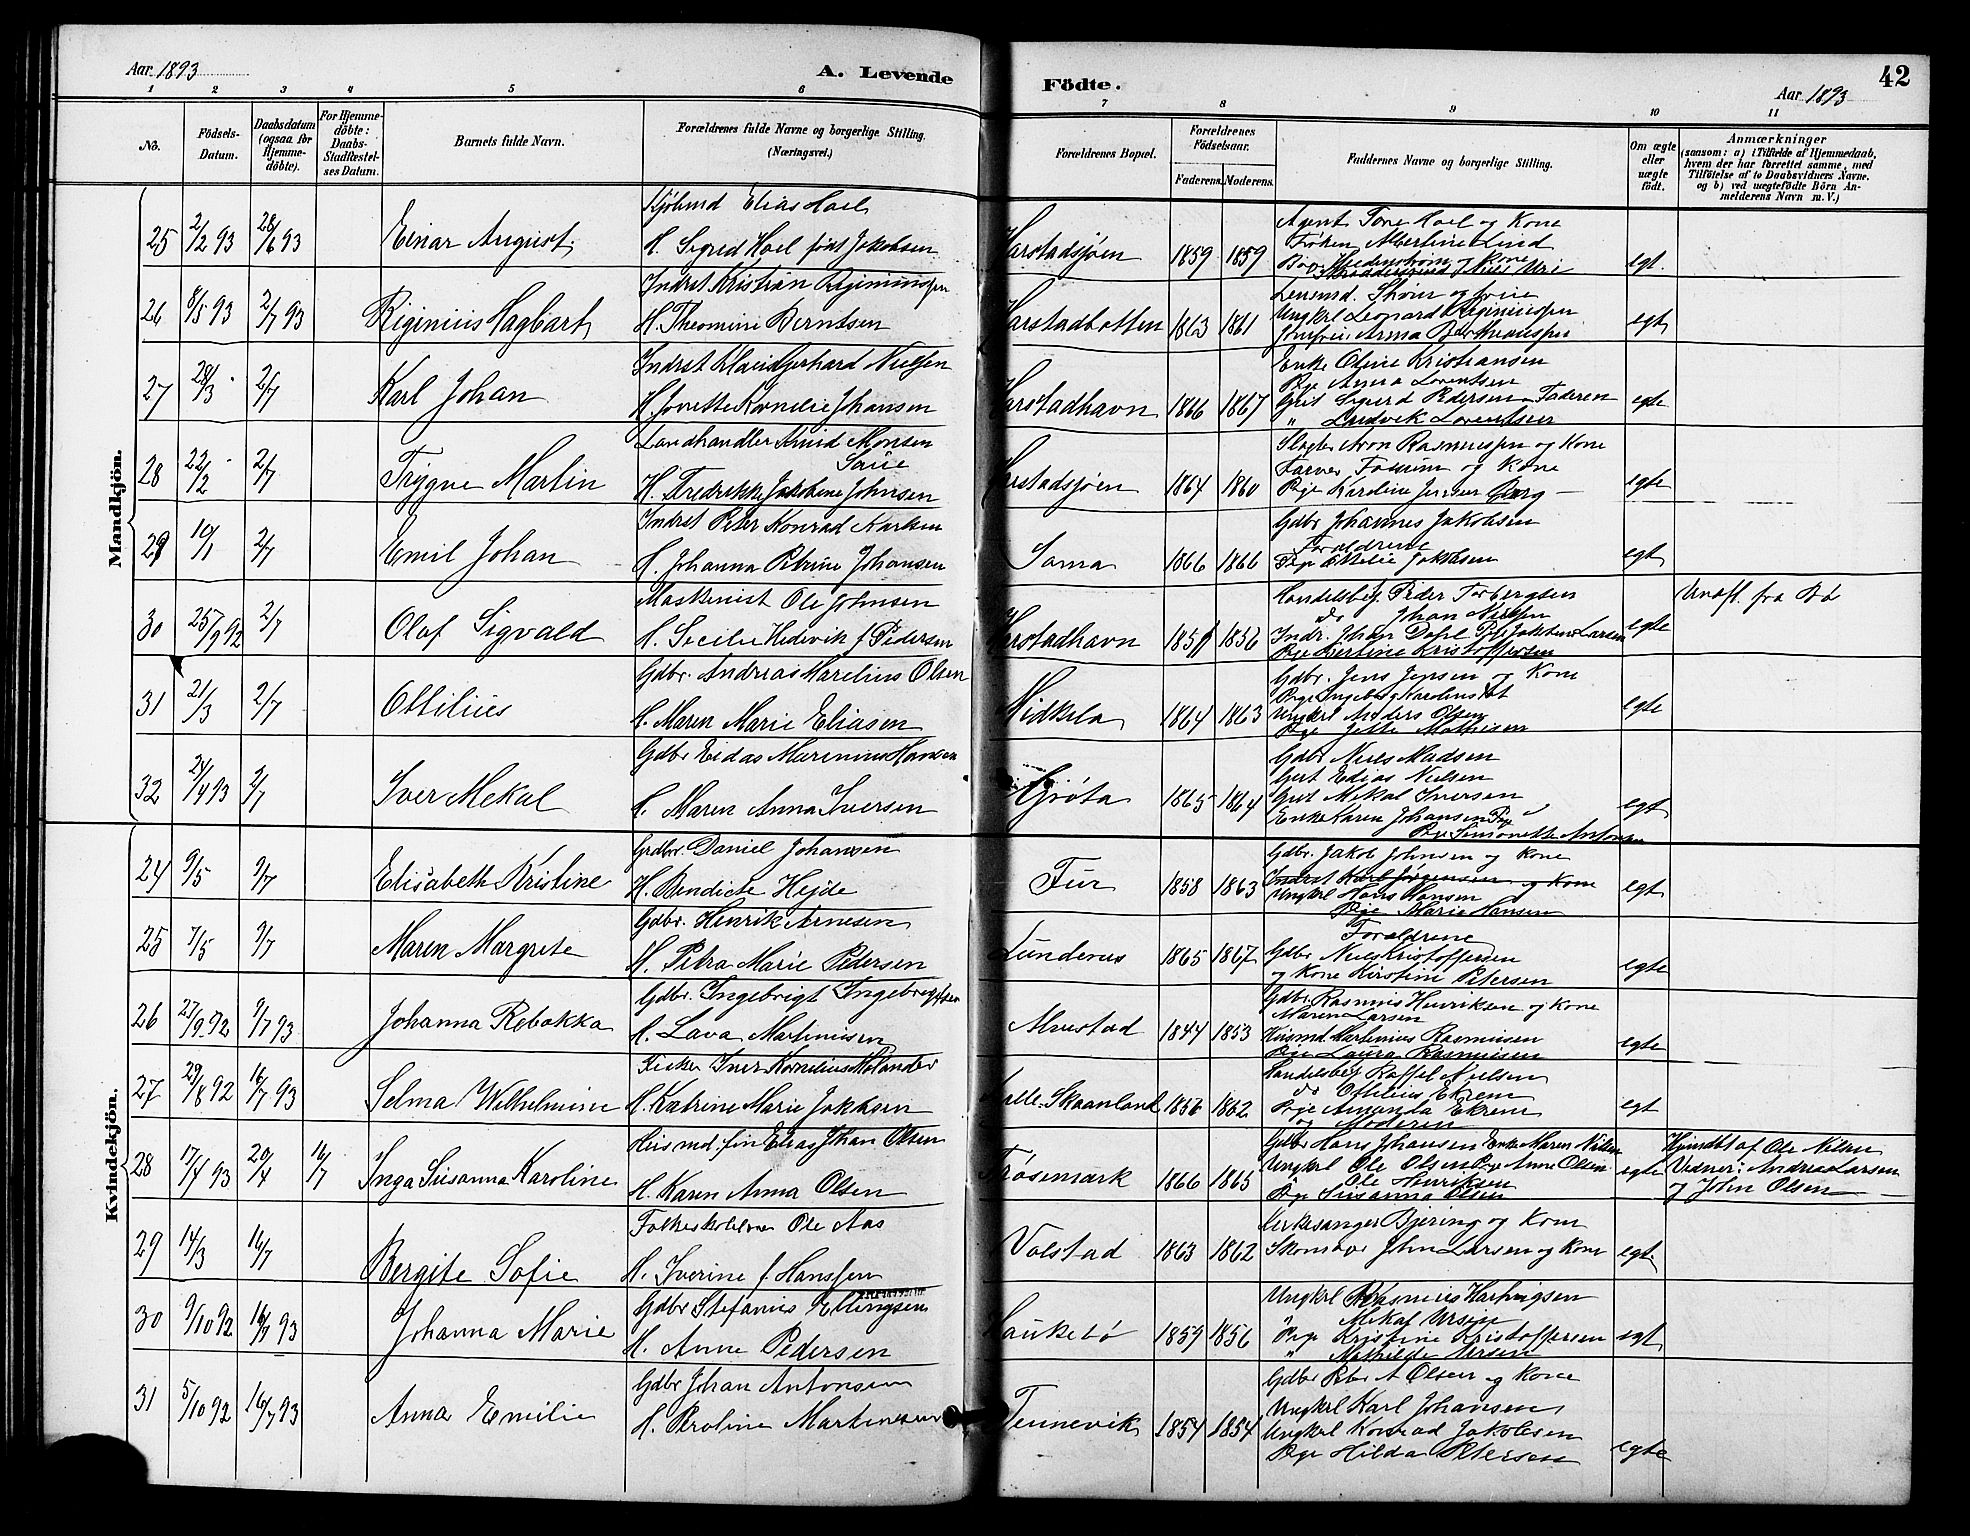 Aar 1893
A. Levende
Födte.
Aar 1893
42
1 2 3 4 5 6 7 8 9 10 11
No.
Födsels-
Datum.
Daabsdatum
(ogsaa for
Hjemme-
döbte).
For Hjemme-
döbte:
Daabs-
Stadfæstel-
ses Datum.
Barnets fulde Navn.
Forældrenes fulde Navne og borgerlige Stilling.
(Næringsvei.)
Forældrenes Bopæl.
Forældrenes
Födselsaar.
Faderens. Moderens.
Faddernes Navne og borgerlige Stilling.
Om ægte
eller
uægte
født.
Anmærkninger
(saasom: a) i Tilfælde af Hjemmedaab,
hvem der har forrettet samme, med
Tilføielse af to Daabsvidners Navne.
og b) ved uægtefødte Börn An-
melderens Navn m.V.)
Mandkjön.
25 2/2 93 28/6 93 Einar August
Kjøbmd Elias Hoel
H. Sigrid Hoel født Jakobsen
Harstadsjøen 1859 1859
Agent Tore Hoel og Kone
Frøken Albertine Lind
egt.
26 8/5 93 2/7 93 Riginius Hagbart
Indrst Kristian Riginiussen
H. Theomine Berntsen
Harstadbotten 1863 1861
Lensmd. Shöier og frue
Ungkrl Leonard Riginiussen
egt
27 28/3 2/7 Karl Johan
Indrst Klaus Gerhard Nielsen
H. Jovette Kornelie Johansen
Harstadhavn 1866 1867
Enke Oline Kristiansen
Pige Anna Lorentsen
Grt Sigurd Pedersen Faderen
" Ludvik Lorentsen
egte
28 22/2 2/7 Trygve Martin
Landhandler Knud Monsen
Saue
H. Fredrikke Jakobine Johnsen
Harstadsjøen 1864 1860
Slagter Aron Rasmussen og Kone
Farver Fosseim og Kone
Pige Karoline Jenser Berg
egte
29 10/1 2/7 Emil Johan
Indrst Peter Konrad Karlsen
H. Johanna Petrine Johansen
Sama 1866 1866
Gdbr Johannes Jakobsen
Foraldrene
Pige Ottilie Jakobsen
egt
30 25/9 92 2/7 Olaf Sigvald
Maskinist Ole Johnsen
H. Secilie Hedevik f. Pedersen
Harstadhavn 1851 1856
Handelsbetj. Peder Torbergsen
do Johan Nielsen
Indr. Johan Dahl Pige Jakobine Larsen
Pige Bertine Kristoffersen
egte
31 21/3 2/7 Ottilius
Gdbr. Andreas Marelius Olsen
H. Maren Marie Eliasen
Midkila 1864 1863
Gdbr. Jens Jensen og Kone
Ungkrl Anders Olsen
Pige Jette Mathisen
egte
32 24/4 93 2/7 Iver Mekal
Gdbr Eidas Marinius Hansen
H. Maren Anna Iversen
Grøta 1865 1864
Gdbr Niels Madsen
Grt Edias Nielsen
Grt Mekal Iversen
Enke Karen Johansen
Pige Simonette Antonsen
egt
Kvindekjön.
24 9/5 9/7 Elisabeth Kristine
Gdbr. Daniel Johansen
H. Bendicte Hejde
Fur 1858 1863
Gdbr. Jakob Johnsen og Kone
Indrst Karl Jørgensen og Kone
Ungkrl Hans Hansen
Pige Marie Hansen
egt
25 7/5 9/7 Maren Margrete
Gdbr. Henrik Arnesen
H. Petra Marie Pedersen
Lundenes 1865 1867
Foraldrene
Gdbr Niels Kristoffersen
og Kone Kirstine Petersen
egte
26 27/9 92 9/7 93 Johanna Rebakka
Gdbr. Ingebrigt Ingebrigtsen
H. Lava Martinusen
Alvestad 1844 1853
Gdbr. Rasmus Henriksen og Kone
Maren Larsen
Husmd Martinius Rasmusen
Pige Laura Rasmusen
egte
27 29/8 92 16/7 93 Selma Wilhelmine
Fisker Iver Kornelius Molander
H. Katrine Marie Jakobsen
Skaanland 1856 1862
Handelsbetj Raffel Nielsen
do Ottilius Ekrem
Pige Amanda Ekrem
og Moderen
egt
28 17/4 93 20/4 16/7 Inga Susanna Karoline
Husmd. fin Elias Johan Olsen
H. Karen Anna Olsen
Trøsemark 1866 1865
Gdbr Hans Johansen Enke Maren Nilsen
Ungkrl Ole Olsen Pige Anne Olsen
Ole Henriksen
Pige Susanna Olsen
egte
Hjmdbt af Ole Nilsen
Vidner: Andreas Larsen
og John Olsen
29 14/3 16/7 Bergite Sofie
Folkeskolelærer Ole Aas
H. Iverine f. Hanssen
Volstad 1863 1862
Kirkesanger Bjering og Kone
Skomager John Larsen og Kone
egte
30 9/10 92 16/7 93 Johanna Marie
Gdbr Stefanus Ellingsen
H. Anne Pedersen
Haukebø 1859 1856
Ungkrl Rasmus Hartvigsen
" Mekal Ursen
Pige Kristine Kristoffersen
" Mathilde Ursen
egt
31 5/10 92 16/7 93 Anna Emilie
Gdbr Johan Antonsen
H. Peroline Martinussen
Tennevik 1854 1854
Gdbr Peter A Olsen og Kone
Ungkrl Karl Johansen
Ungkrl Konrad Jakobsen
Pige Hilda Petersen
egte